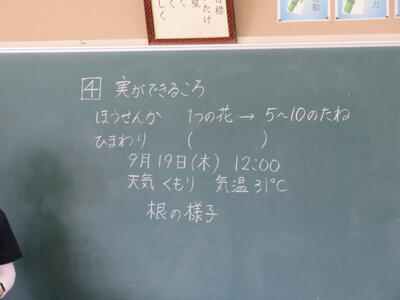 4 実ができるころ
ほうせんか 1つの花→5〜10のたね
ひまわり (　　　)
9月19日(木) 12:00
天気 くもり 気温31℃
根の様子